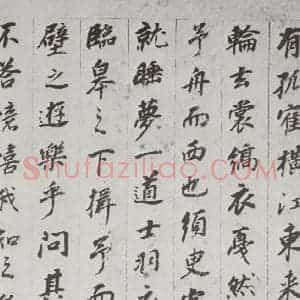 有孤鶴橫江東來
輪玄裳縞衣戛然
予舟而西也須臾
就睡夢一道士羽衣
臨皋之下揖予而
壁之遊樂乎問其
不答噫嘻我知之
Shufaziliao.com